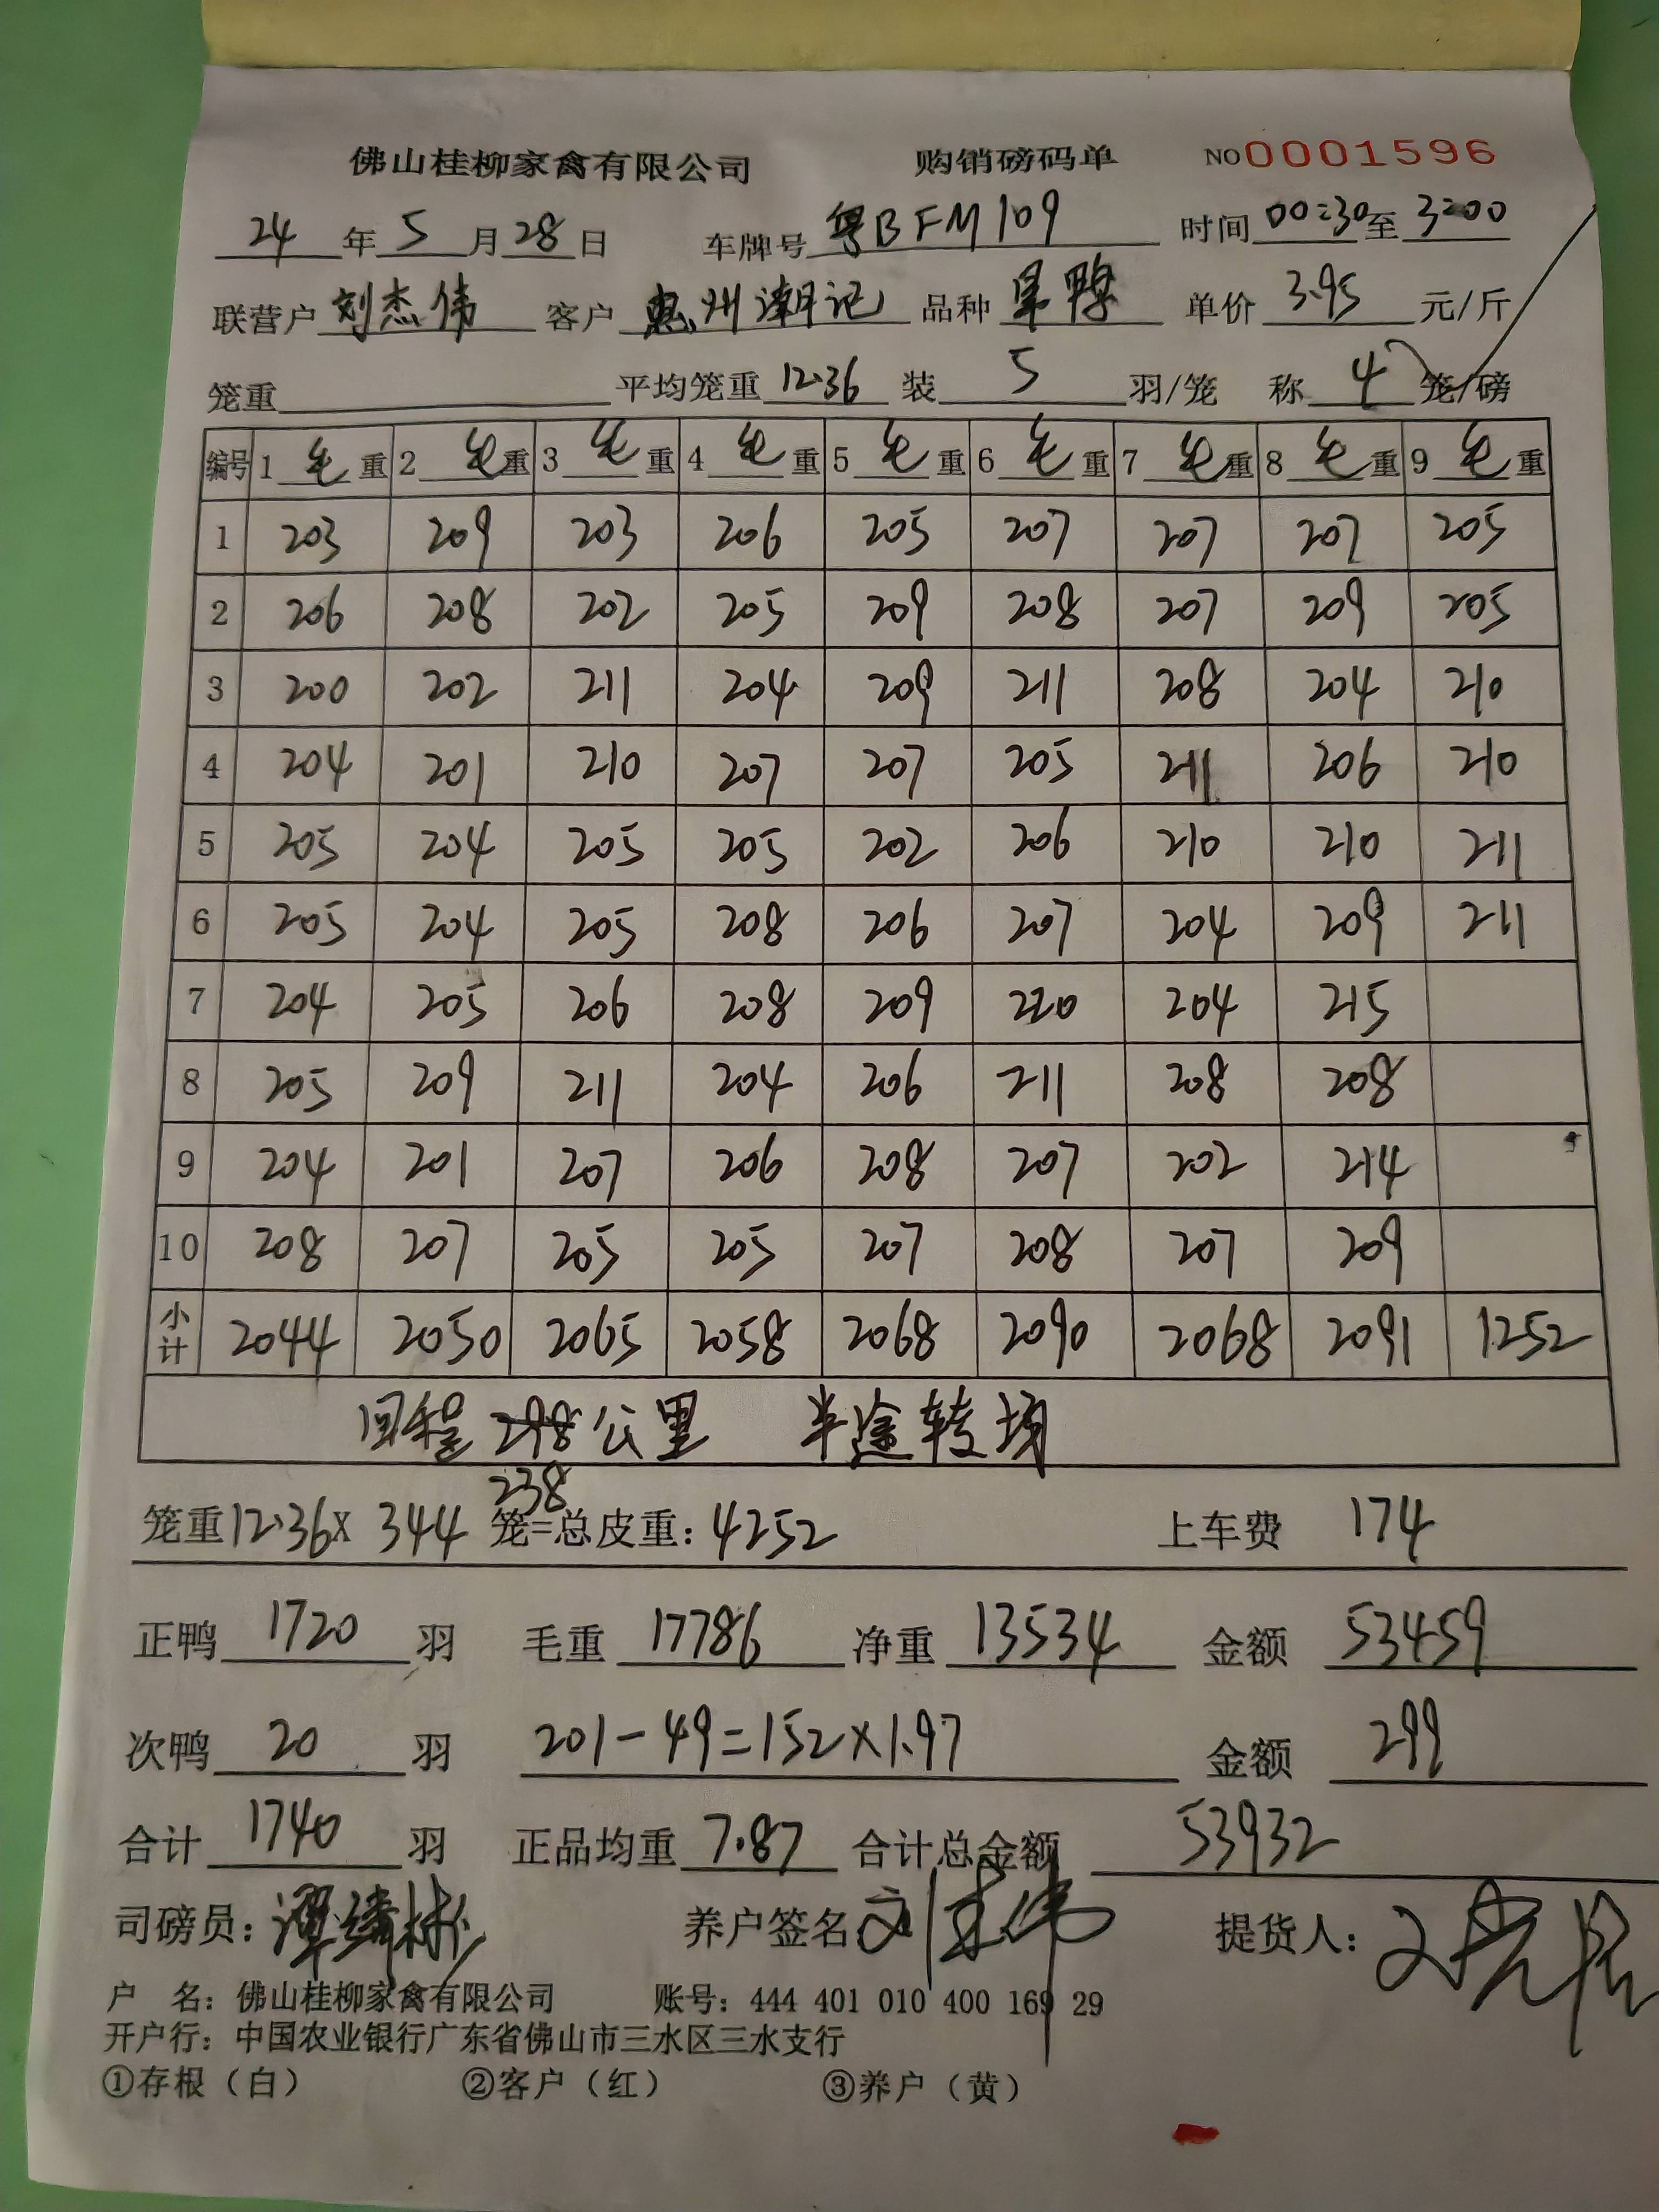 佛山桂柳家禽有限公司 购销磅码单 NO0001596
24年5月28日 车牌号 粤BFM109 时间 00:30至3:00
联营户 刘杰伟 客户 惠州潮记 品种 单价 3.95 元/斤
笼重 平均笼重 12.36 装 5 羽/笼 称 4 笼/磅
编号 1 毛 重 2 毛 重 3 毛 重 4 毛 重 5 毛 重 6 毛 重 7 毛 重 8 毛 重 9 毛 重
1 203 209 203 206 205 207 207 207 205
2 206 208 202 205 209 208 207 209 205
3 200 202 211 204 209 211 208 204 210
4 204 201 210 207 207 205 211 206 210
5 205 204 205 205 202 206 210 210 211
6 205 204 205 208 206 207 204 209 211
7 204 205 206 208 209 220 204 215
8 205 209 211 204 206 211 208 208
9 204 201 207 206 208 207 202 214
10 208 207 205 205 207 208 207 209
小计 2044 2050 2065 2058 2068 2090 2068 2091 1252
回程 298 公里 半途转场
238
笼重12.36X 344 笼=总皮重: 4252 上车费 174
正鸭 1720 羽 毛重 17786 净重 13534 金额 53459
次鸭 20 羽 201-49=152×1.97 金额 299
合计 1740 羽 正品均重 7.87 合计总金额 53932
司磅员: 养户签名 刘杰伟 提货人:
户 名: 佛山桂柳家禽有限公司 账号: 444 401 010 400 169 29
开户行: 中国农业银行广东省佛山市三水区三水支行
①存根（白） ②客户（红） ③养户（黄）